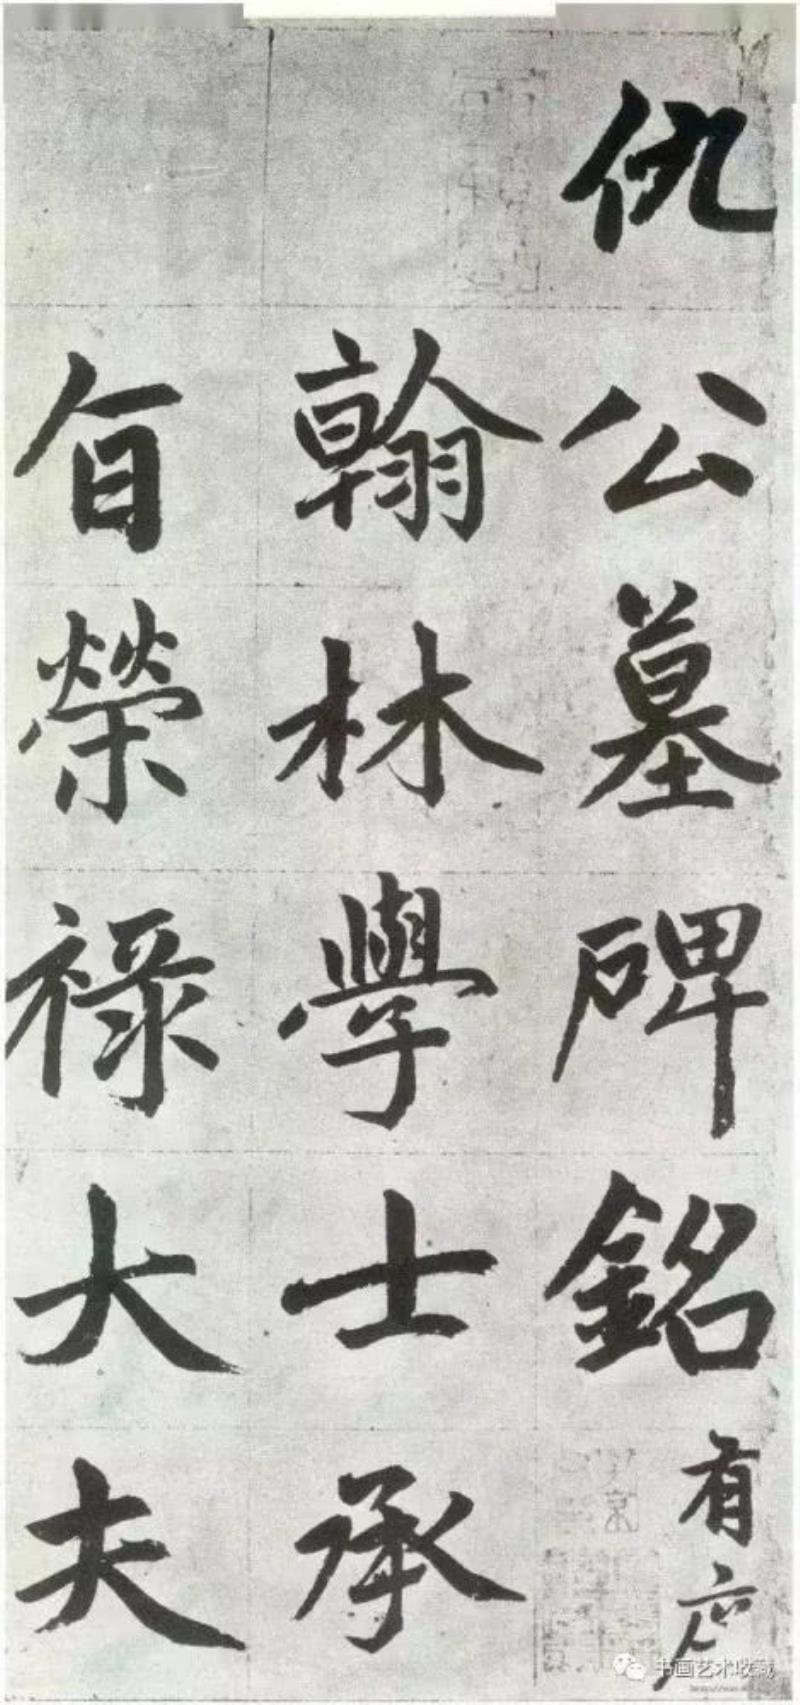 仇公墓碑銘有序
翰林學士承
旨榮祿大夫
书画艺术收藏